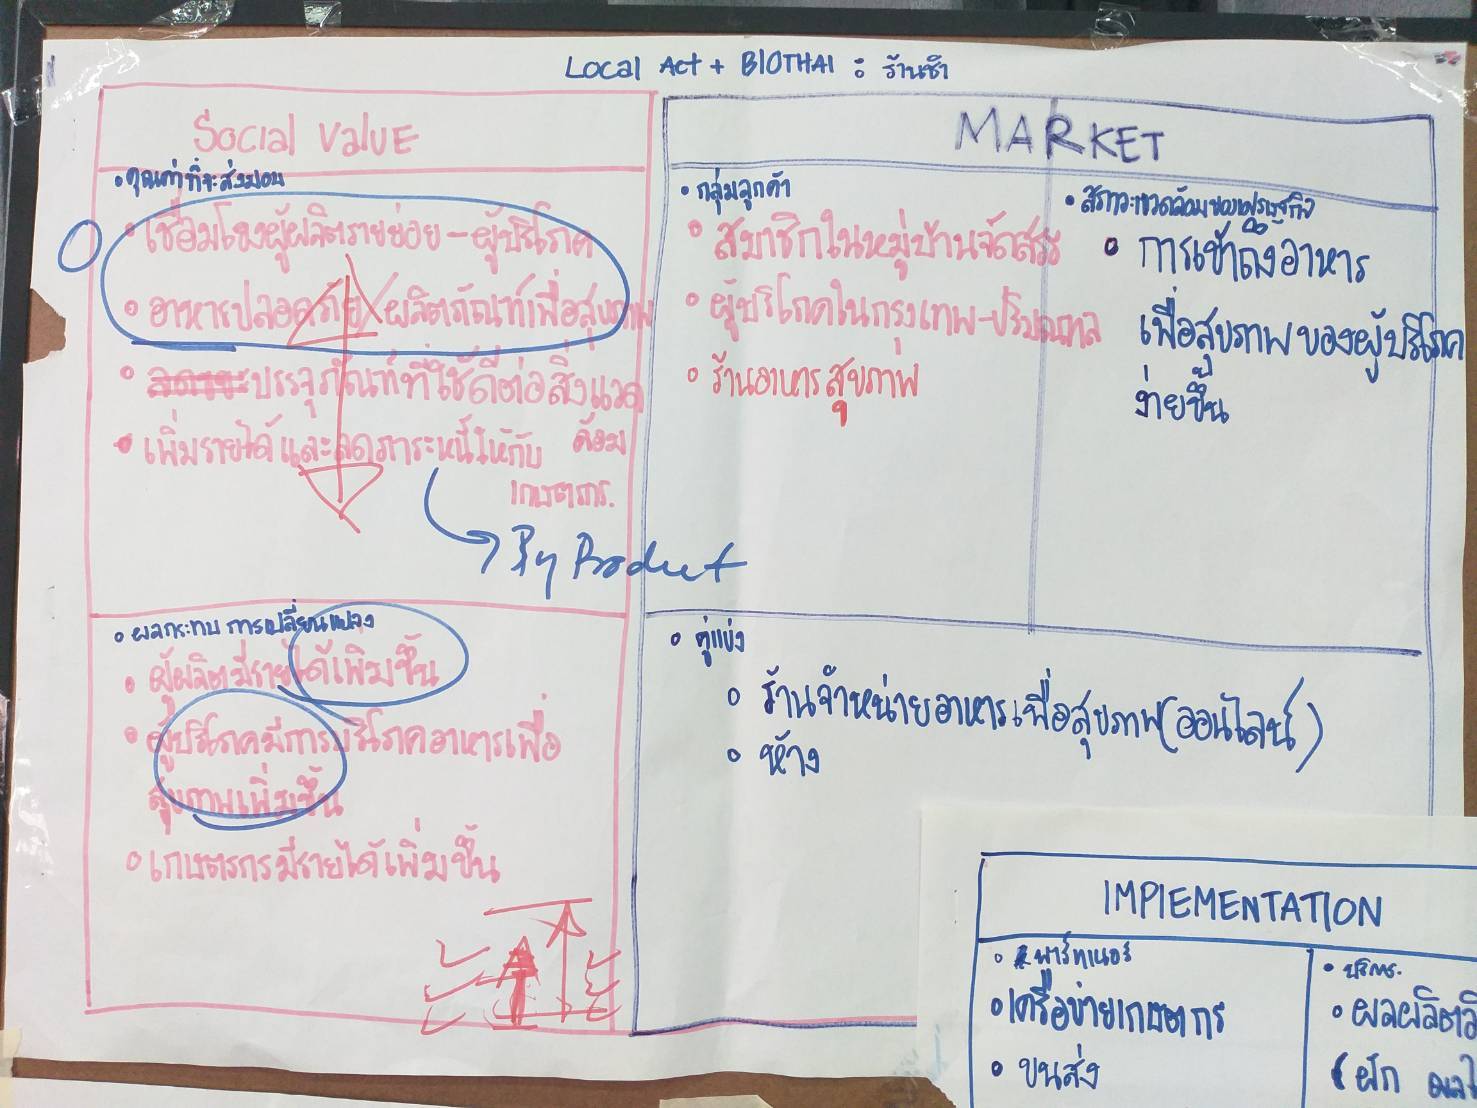 Local Act + BIOTHAI : ร้านชำ
Social Value
• คุณค่าที่จะส่งมอบ
• เชื่อมโยงผู้ผลิตรายย่อย - ผู้บริโภค
• อาหารปลอดภัย/ผลิตภัณฑ์เพื่อสุขภาพ
• บรรจุภัณฑ์ที่ใช้ดีต่อสิ่งแวด
ล้อม
• เพิ่มรายได้ และลดภาระหนี้ให้กับ
เกษตรกร.
By Product
• ผลกระทบ การเปลี่ยนแปลง
• ผู้ผลิตมีรายได้เพิ่มขึ้น
• ผู้บริโภคมีการบริโภคอาหารเพื่อ
สุขภาพเพิ่มขึ้น
• เกษตรกรมีรายได้เพิ่มขึ้น
MARKET
• กลุ่มลูกค้า
• สมาชิกในหมู่บ้านจัดสรร
• ผู้บริโภคในกรุงเทพ-ปริมณฑล
• ร้านอาหารสุขภาพ
• สภาวะแวดล้อมของเศรษฐกิจ
• การเข้าถึงอาหาร
เพื่อสุขภาพของผู้บริโภค
ง่ายขึ้น
• คู่แข่ง
• ร้านจำหน่ายอาหารเพื่อสุขภาพ(ออนไลน์)
• ห้าง
IMPLEMENTATION
• พาร์ทเนอร์
• เครือข่ายเกษตกร
• ขนส่ง
• บริการ.
• ผลผลิต
(ผัก